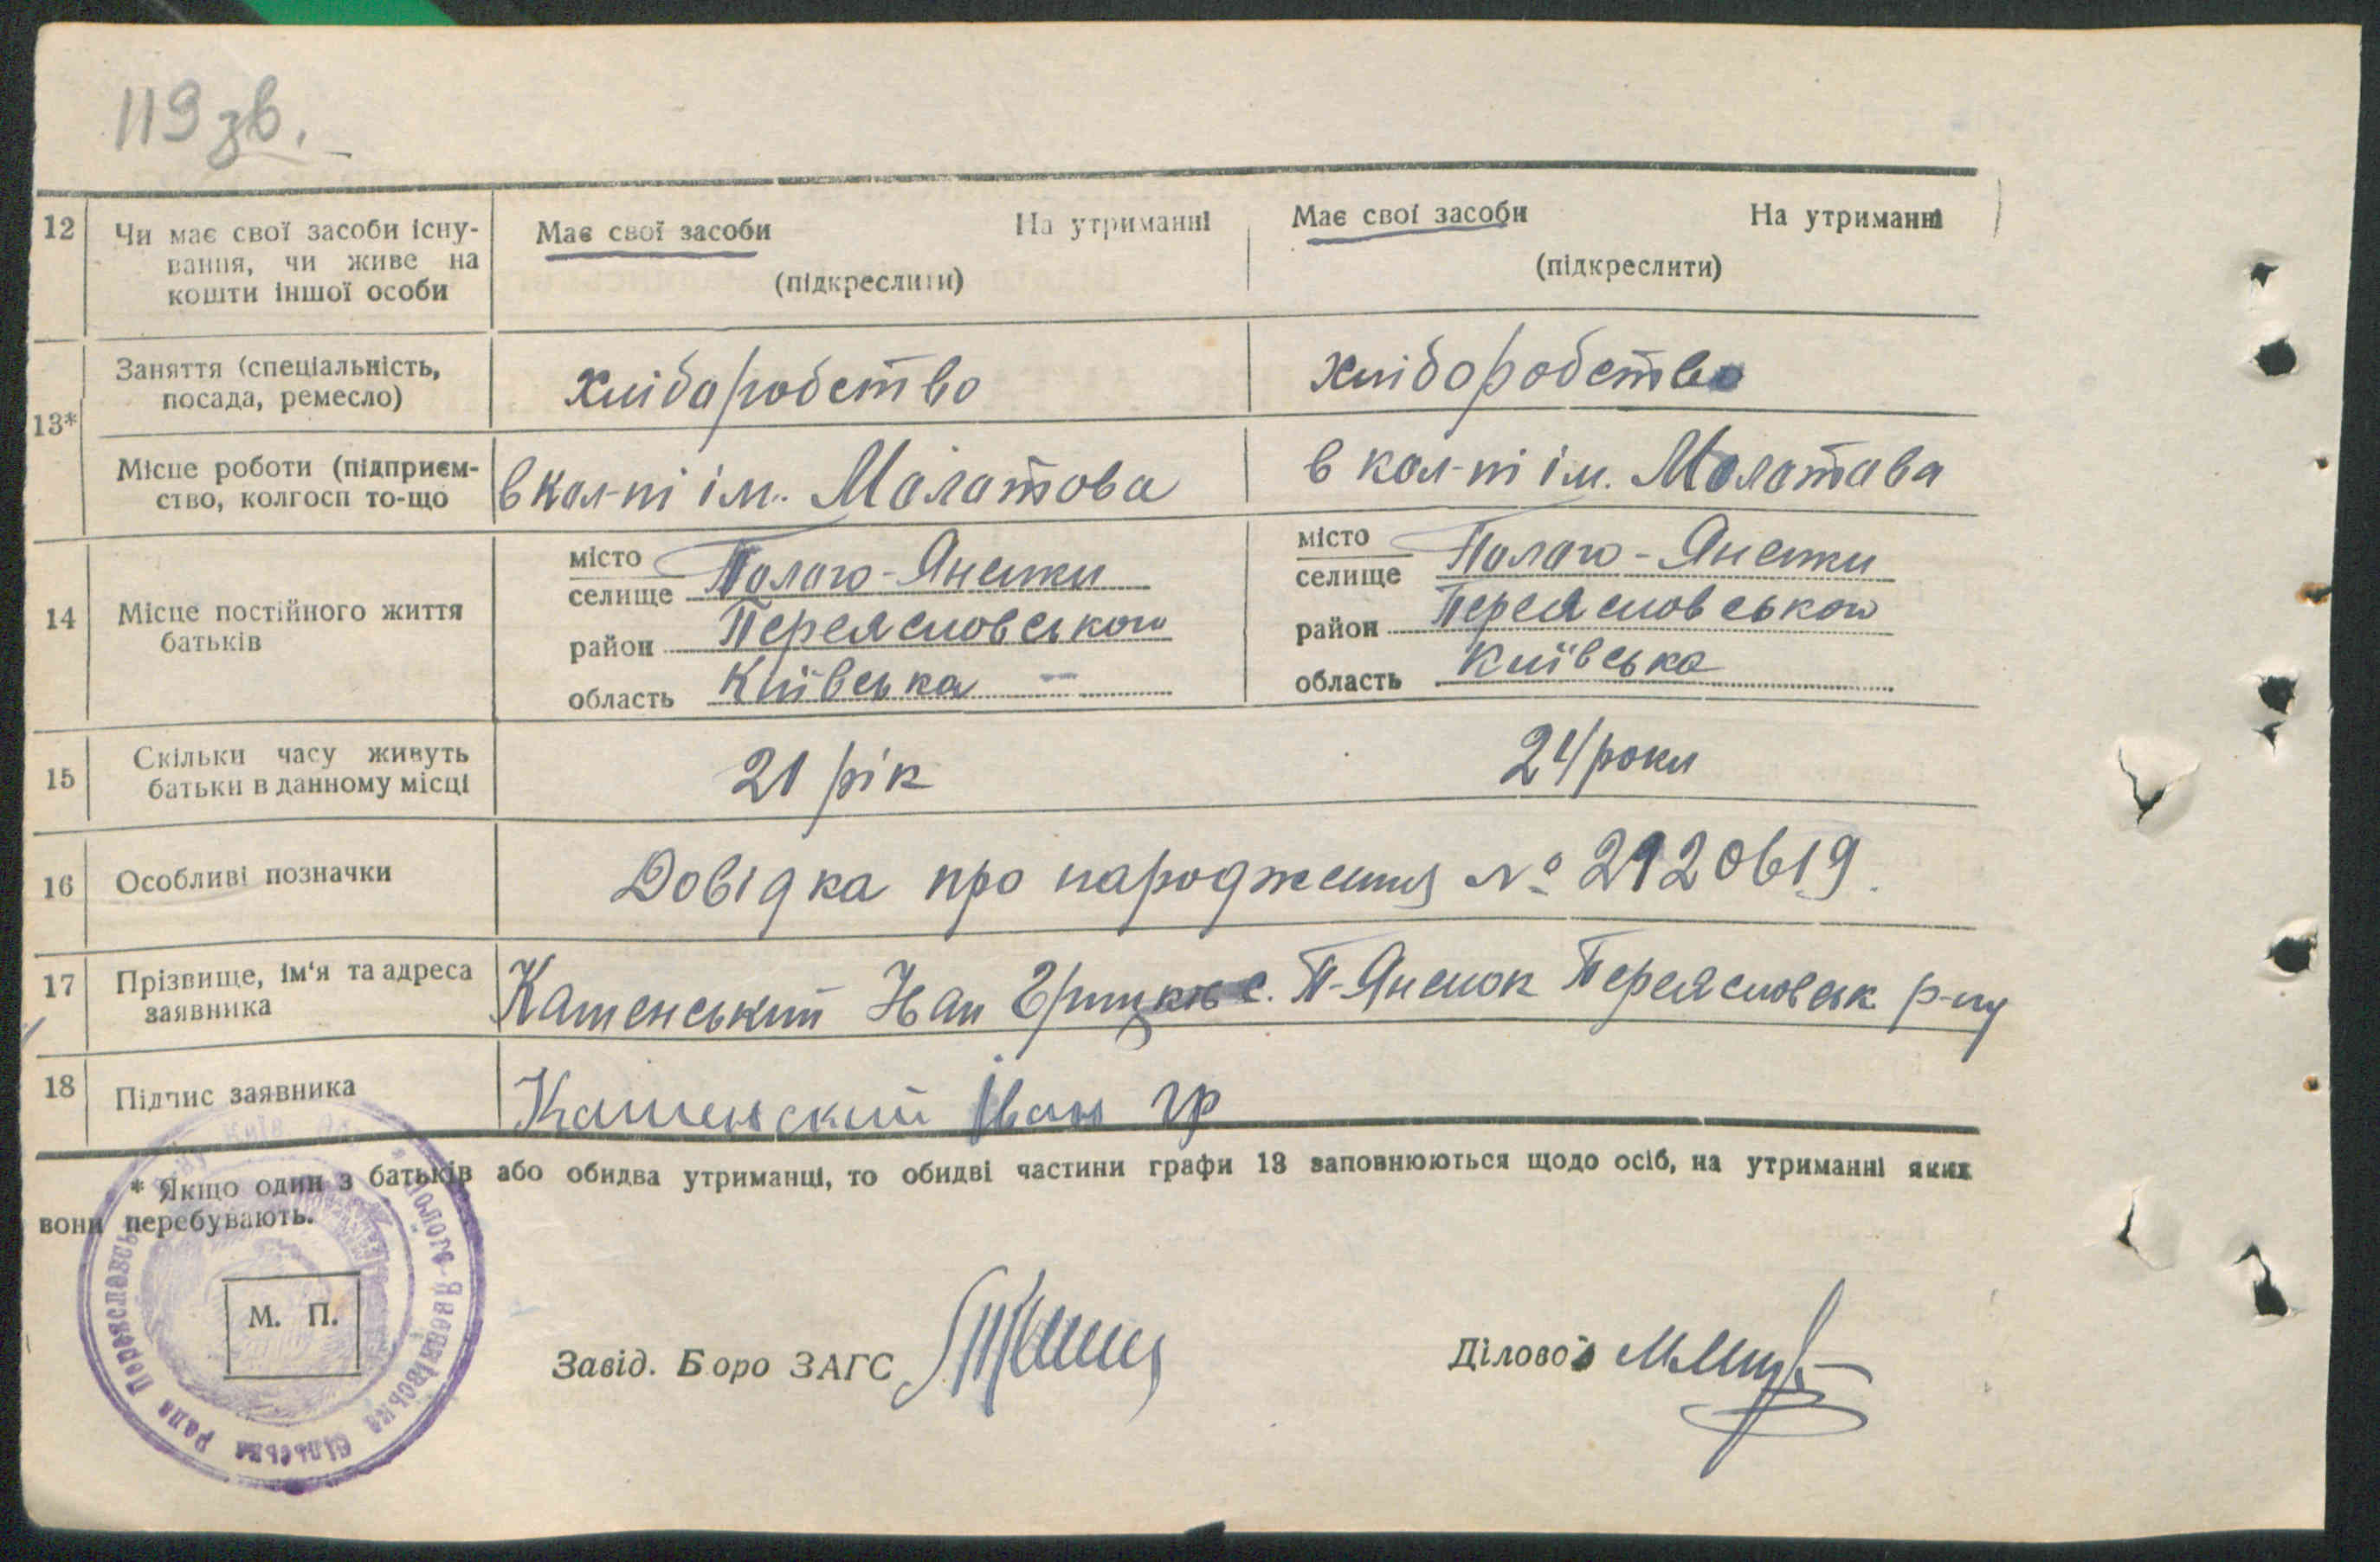 119 зв.
12 Чи має свої засоби існу-
вання, чи живе на
кошти іншої особи
Має свої засоби На утриманні
(підкреслити)
Має свої засоби На утриманні
(підкреслити)
13*
Заняття (спеціальність,
посада, ремесло)
хліборобство
хліборобство
Місце роботи (підприєм-
ство, колгосп то-що
в кол-пі ім. Молотова
в кол-пі ім. Молотова
14 Місце постійного життя
батьків
місто
селище Полого-Яненки
район Переяславського
область Київська
місто
селище Полого-Яненки
район Переяславського
область Київська
15 Скільки часу живуть
батьки в данному місці
21 рік
24 роки
16 Особливі позначки
Довідка про народження № 2920619.
17 Прізвище, ім'я та адреса
заявника
с. П-Яненок Переяславськ р-ну
18 Підпис заявника
Іван гр
* Якщо один з батьків або обидва утриманці, то обидві частини графи 13 заповнюються щодо осіб, на утриманні яких
вони перебувають.
М. П.
Завід. Боро ЗАГС
Діловод
сільська рада